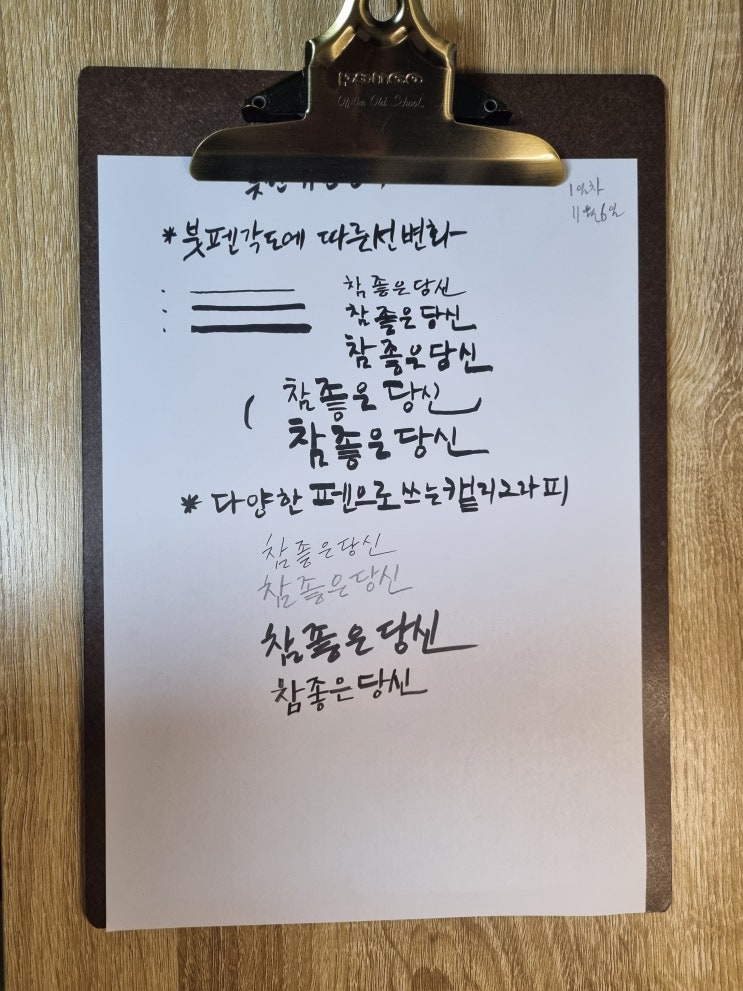 pomoo
Of the Old School
1일차
11월6일
*붓펜각도에 따른선변화
참좋은당신
참좋은당신
참좋은당신
참좋은당신
참좋은당신
*다양한 펜으로쓰는캘리그라피
참좋은당신
참좋은당신
참좋은당신
참좋은당신